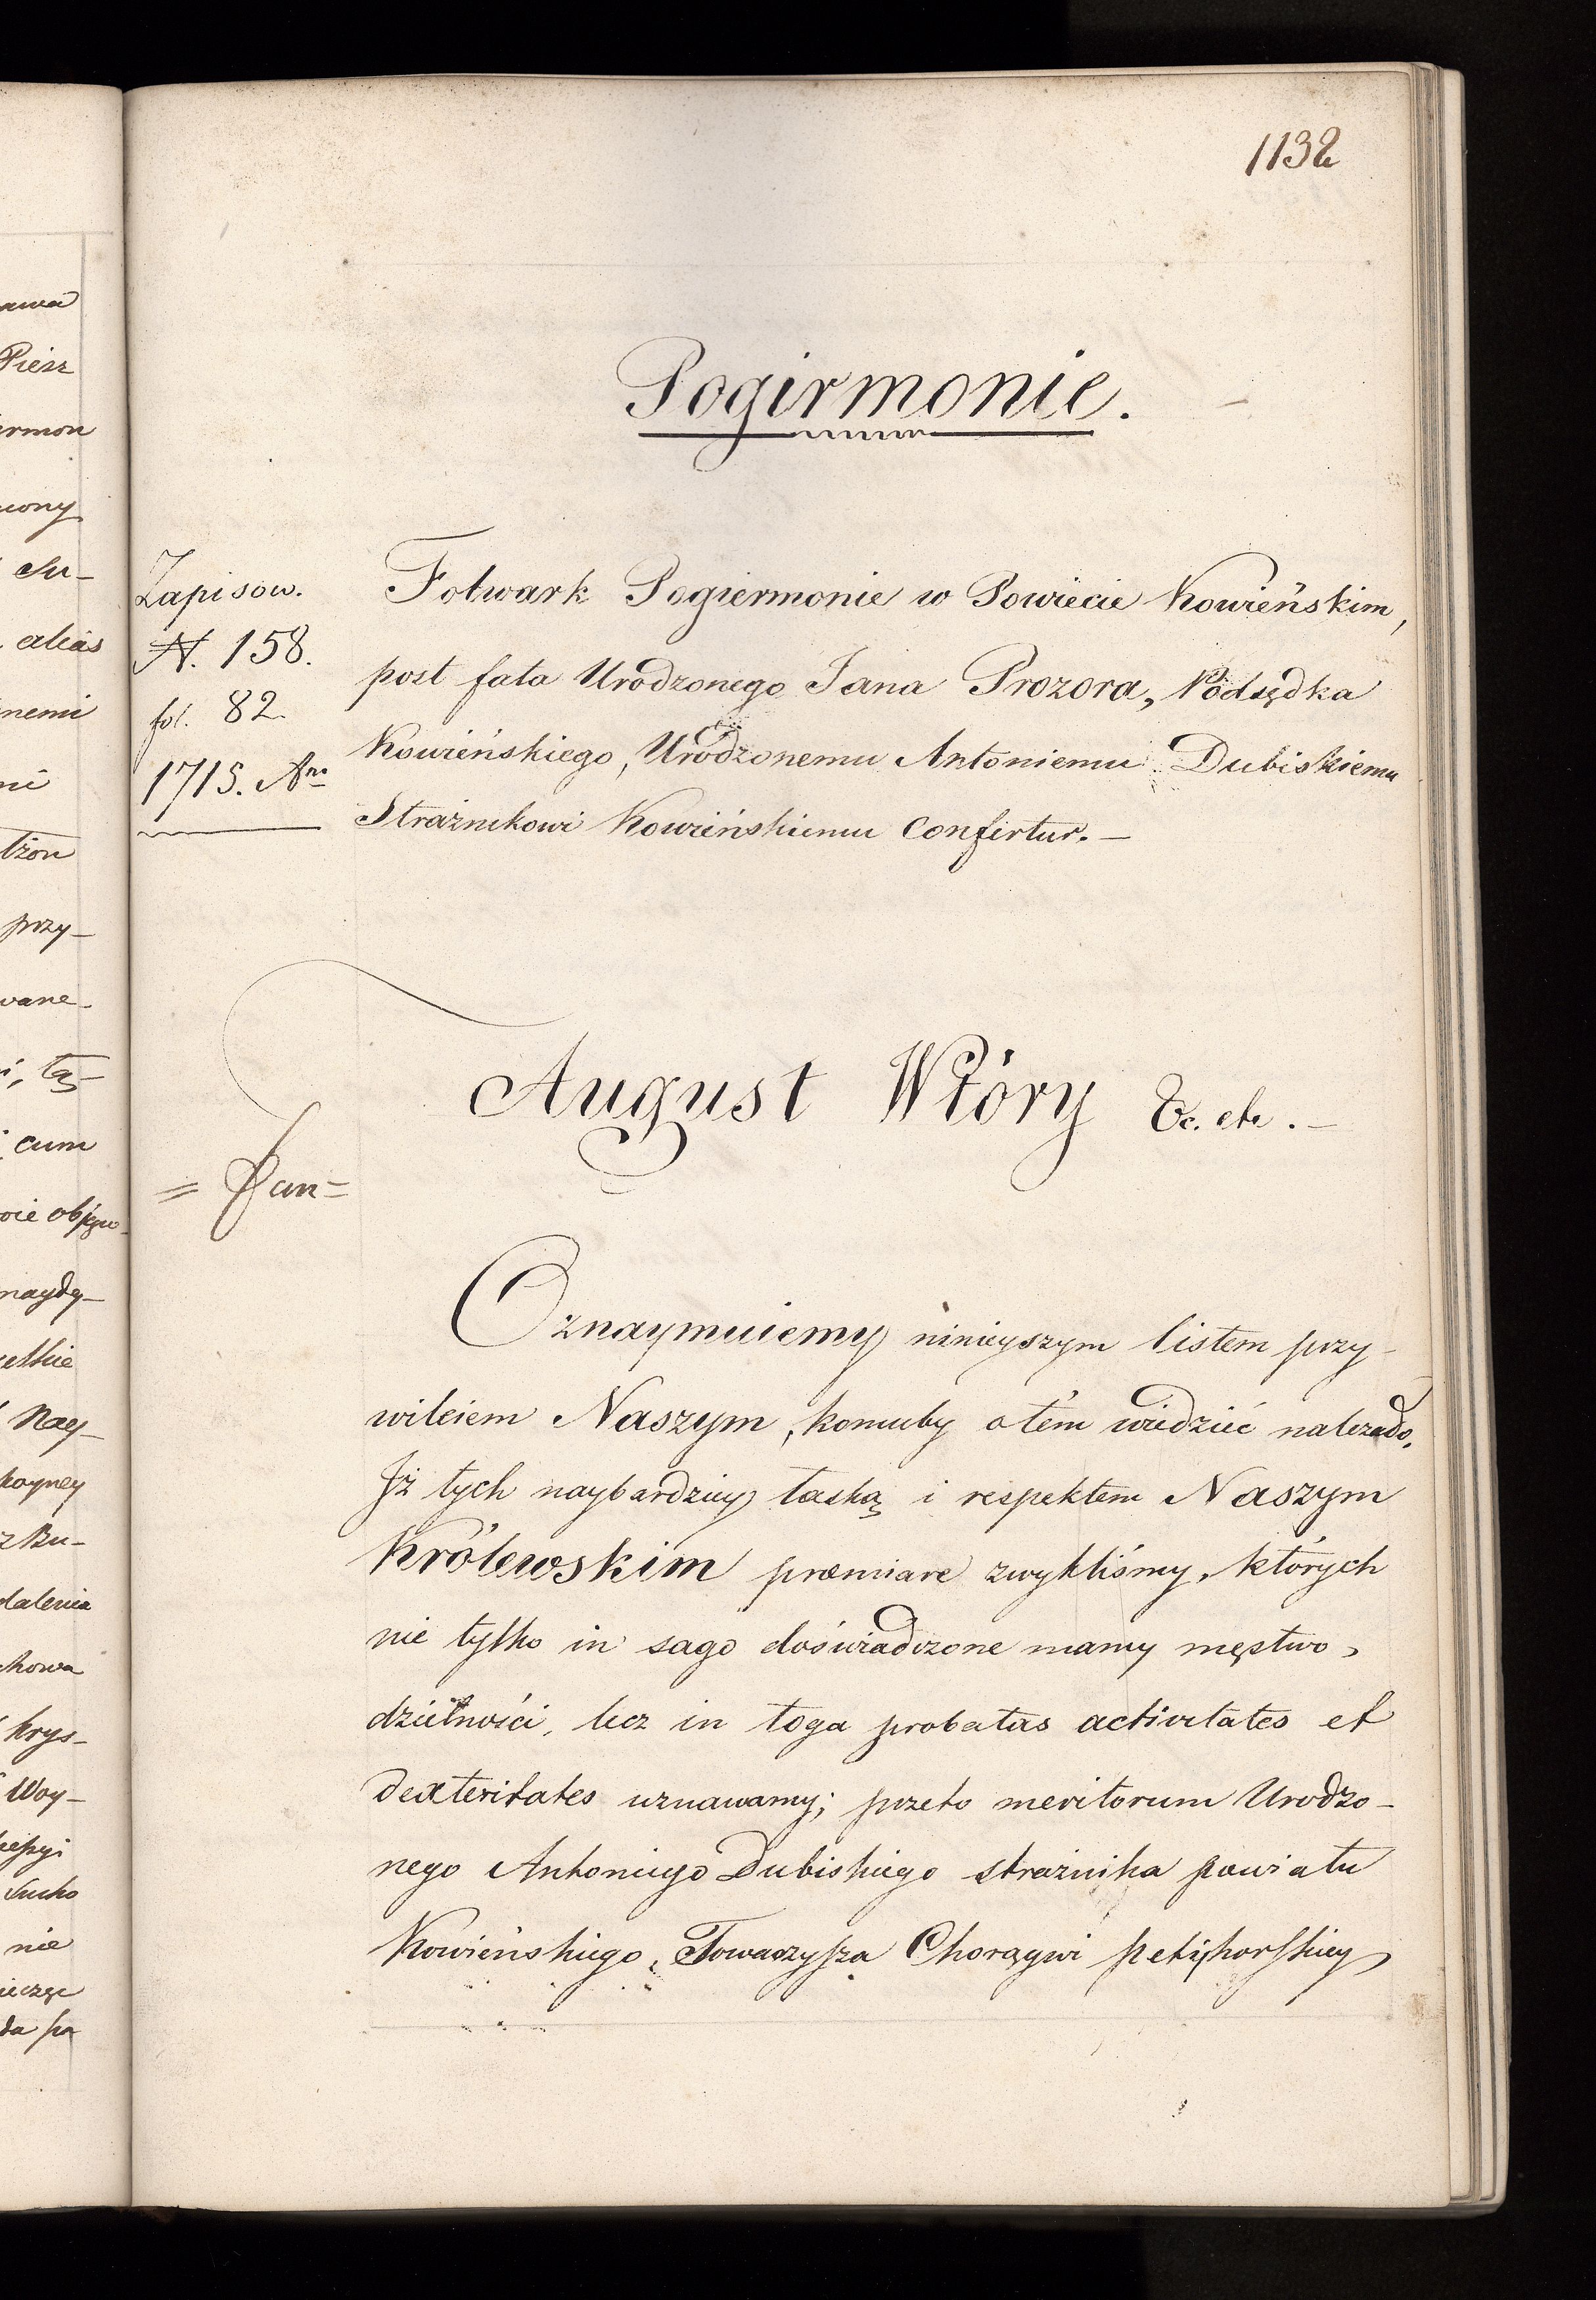 1132
Pogirmonie.
Zapisow.
N. 158.
fol. 82.
1715. Ano
Folwark Pogiermonie w Powiecie Kowieńskim,
post fata Urodzonego Jana Prozora, Podsędka
Kowieńskiego, Urodzonemu Antoniemu Dubiskiemu
Strażnikowi Kowieńskiemu Confertur.—
August Wtóry &c. etc.—
Oznaymuiemy ninieyszym listem przy-
wileiem Naszym, komuby o tem wiedzieć należało,
Iż tych naybardziey łaską i respektem Naszym
Królewskim præmiare zwykliśmy, których
nie tylko in sago doświadczone mamy męstwo,
dzielności, lecz in toga probatas activitates et
dexteritates uznawamy; przeto meritorum Urodzo-
nego Antoniego Dubiskiego strażnika powiatu
Kowieńskiego, Towarzysza Chorągwi petyhorskiey
awa
Piesz
ermon
iony
Su-
alias
nemi
ni
przy-
wane-
i, tą-
cum
naydy-
Nay-
koyney
z Bu-
dalenia
chowa
krys-
Woy-
nie